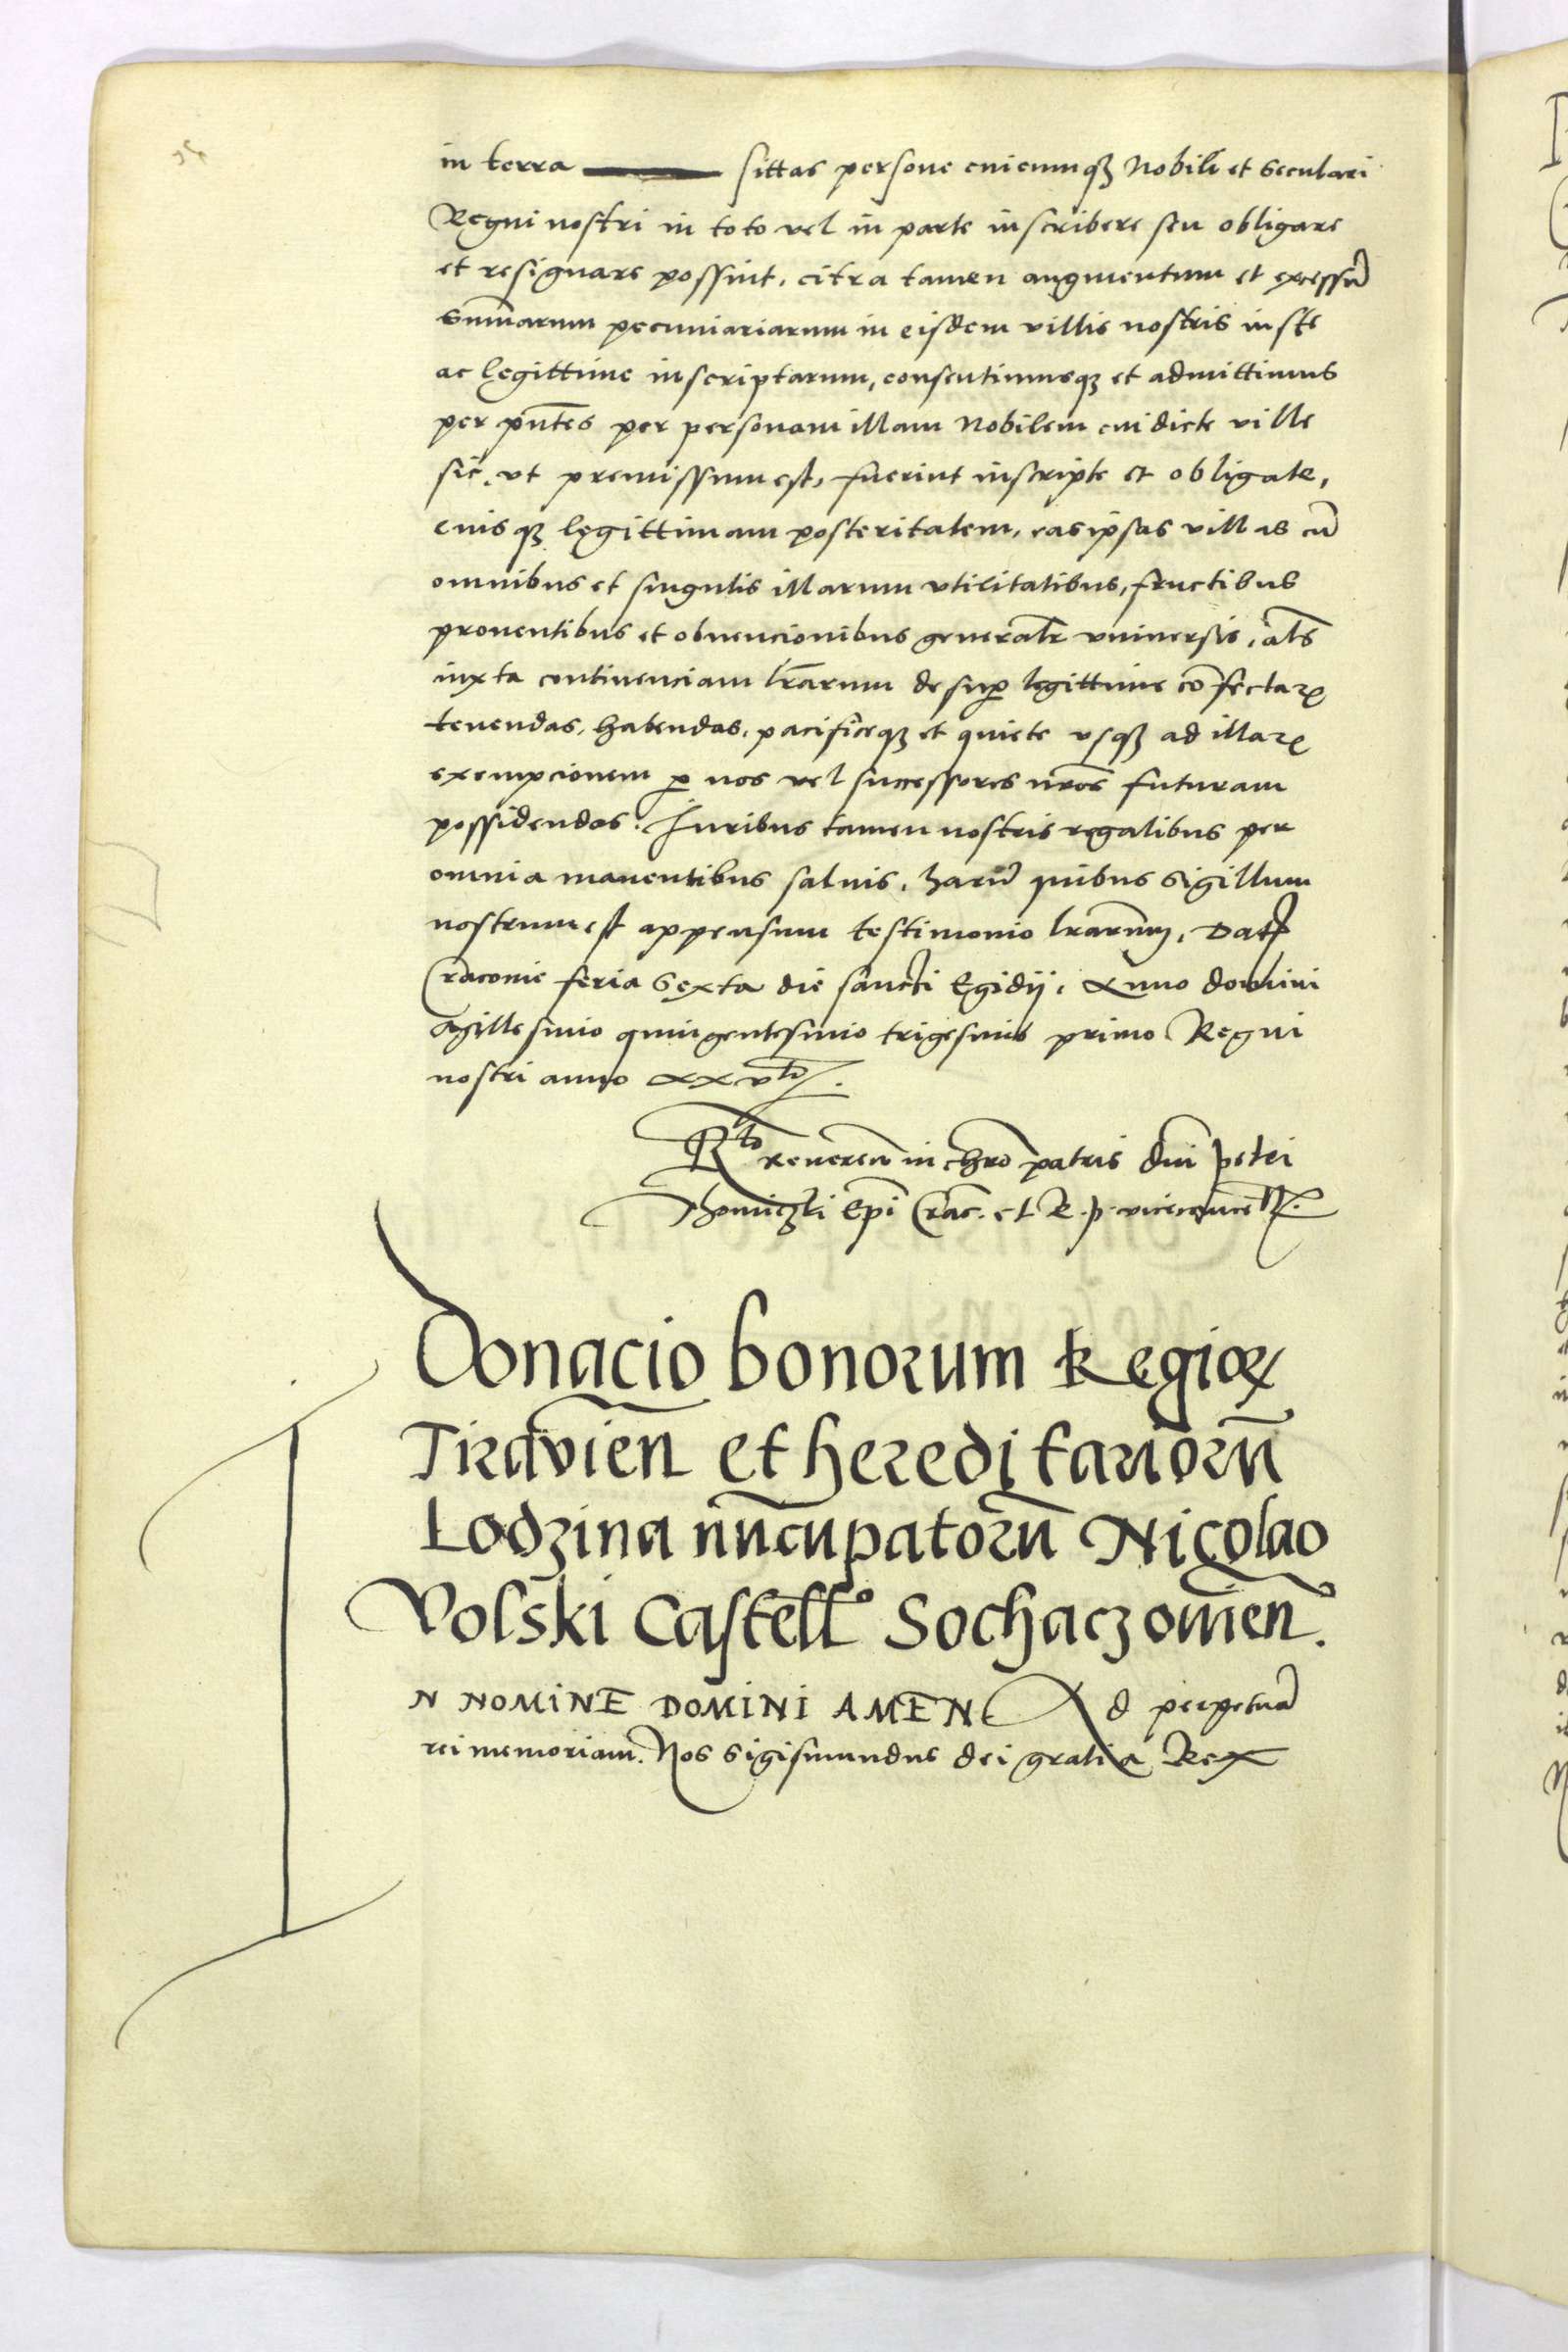 in terra ——— sittas persone cuicumqȝ Nobili et Seculari
Regni nostri in toto vel in parte inscribere seu obligare
et resignare possint, citra tamen augmentum et excessū
summarum pecuniariarum in eisdem villis nostris iuste
ac legittime inscriptarum, consentimusqȝ et admittimus
per pn̄tes per personam illam Nobilem cui dicte ville
sic. vt premissum est, fuerint inscripte et obligate,
cuisqȝ legittimam posteritatem, eas ipsas villas cū
omnibus et singulis illarum vtilitatibus, fructibus
proventibus et obvencionibus generalr̄ vniversis, alīs
iuxta continenciam lr̄arum desup̱ legittime cōfectaꝝ
tenendas, habendas, pacificeqȝ et quiete vsqȝ ad illaꝝ
exempcionem ꝑ nos vel successores nr̄os futuram
possidendas. Iuribus tamen nostris regalibus per
omnia manentibus salvis, harū quibus Sigillum
nostrum est appensum testimonio lr̄arum, Dat
Cracovie feria Sexta die sancti Egidij, Anno domini
Millesimo quingentesimo trigesimo primo Regni
nostri anno XXVto.
Rto Reveren in chr̄o patris dn̄i petri
Thomiczki Ep̄i Crac. et R. p. vicecancell.
Donacio bonorum Regioꝝ
Tiravien̄ et hereditariorū
Lodzina nūcupatorū Nicolao
Volski Castellº Sochaczovien.
IN NOMINE DOMINI AMEN Ad perpetuā
rei memoriam. Nos Sigismundus dei gratia Rex